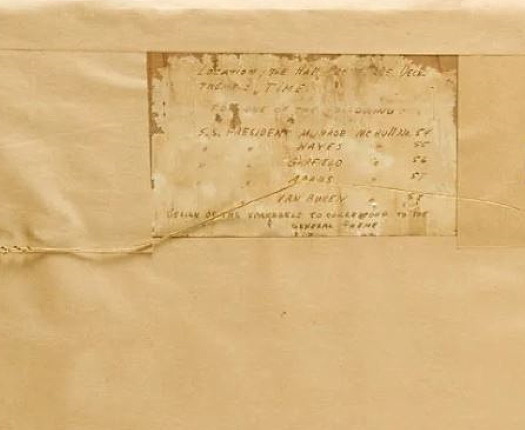 LOCATION, THE HALL,
THEME, TIME.
FOR ONE OF THE FOLLOWING
S.S. PRESIDENT MUNROE NC HULL No. 54
" " HAYES " 55
" " GARFIELD " 56
" " ADAMS " 57
" VAN BUREN " 58
DESIGN OF THE SPANDRELS TO CORRESPOND TO THE
GENERAL THEME